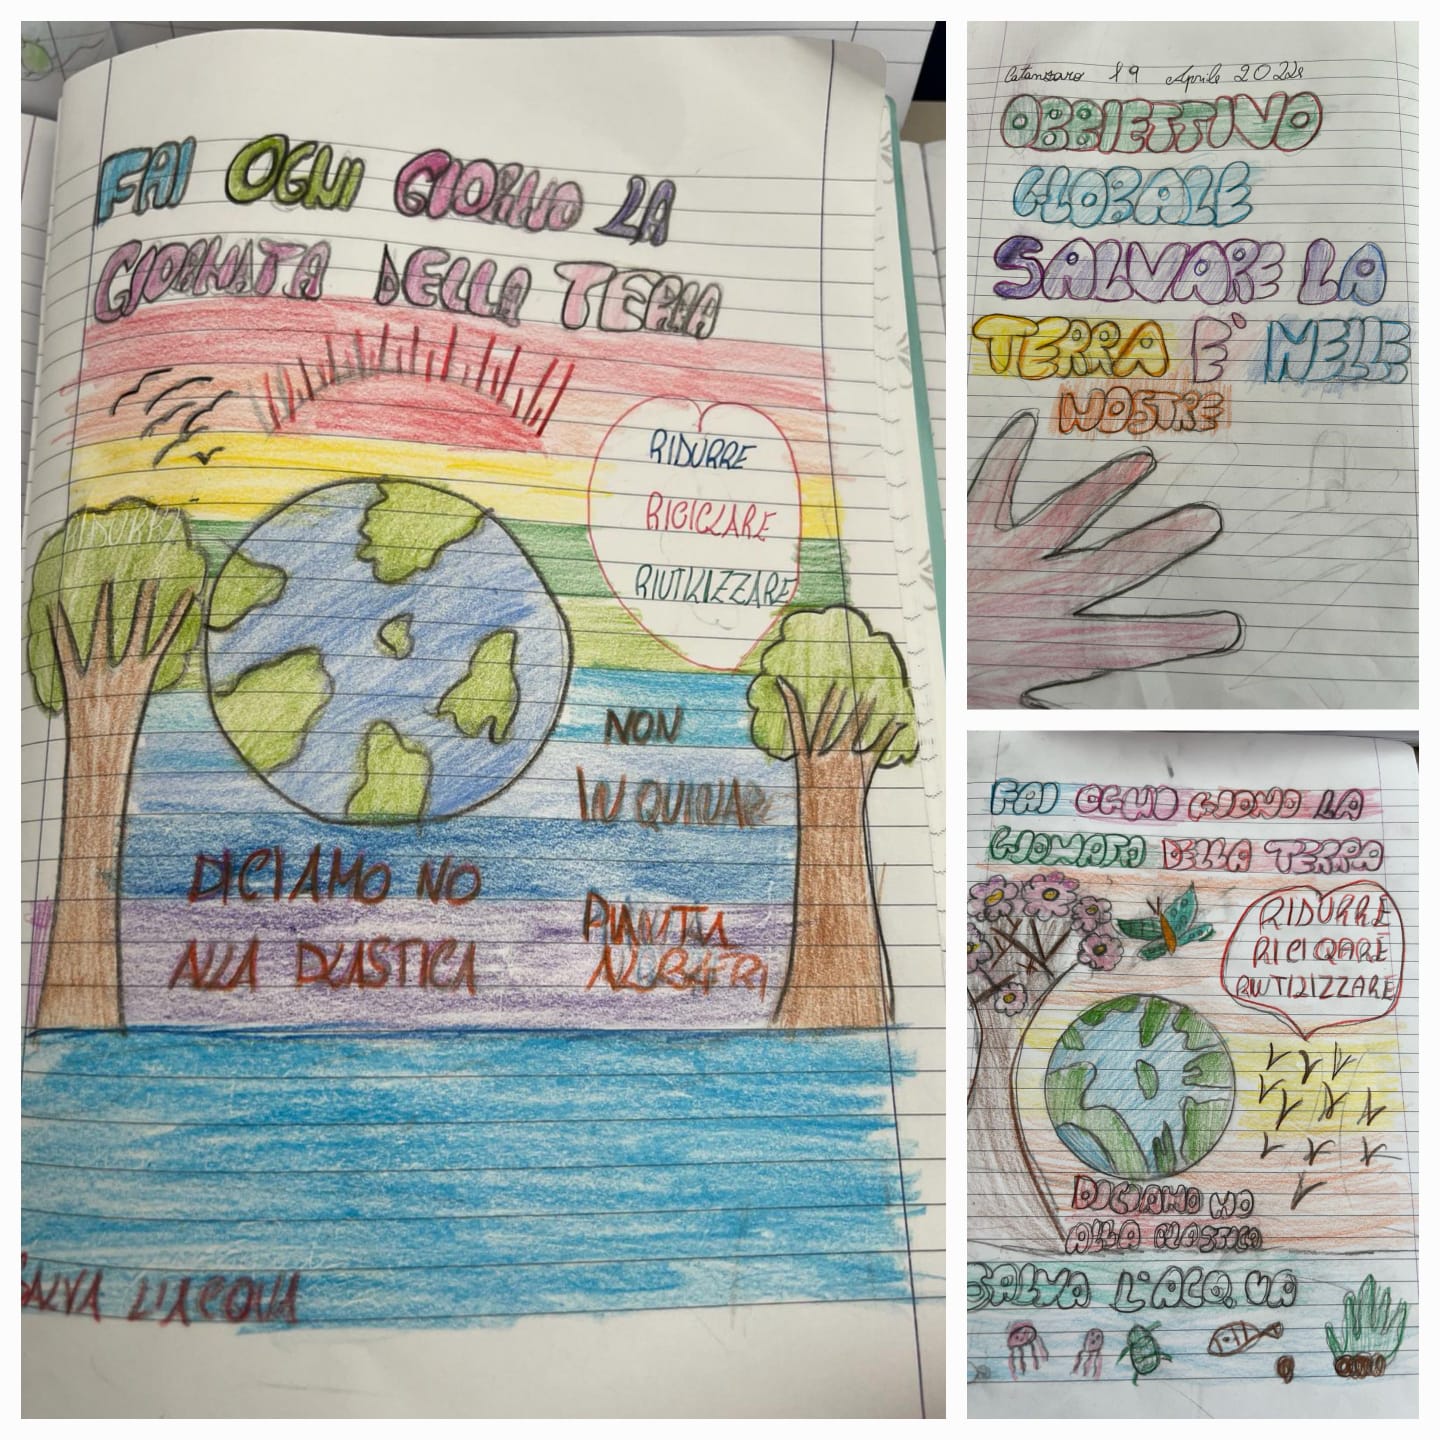 FAI OGNI GIORNO LA
GIORNATA DELLA TERRA
RIDURRE
RICICLARE
RIUTILIZZARE
RIDURRE
NON
INQUINARE
DICIAMO NO
ALLA PLASTICA
PIANTA
ALBERI
SALVA L'ACQUA
Catanzaro 19 Aprile 2022
OBBIETTIVO
GLOBALE
SALVARE LA
TERRA E' NELLE
NOSTRE
FAI OGNI GIONO LA
GIONATO DELLA TERRA
RIDURRE
RICICLARE
RIUTILIZZARE
DICIAMO NO
ALLA PLASTICA
SALVA L'ACQUA